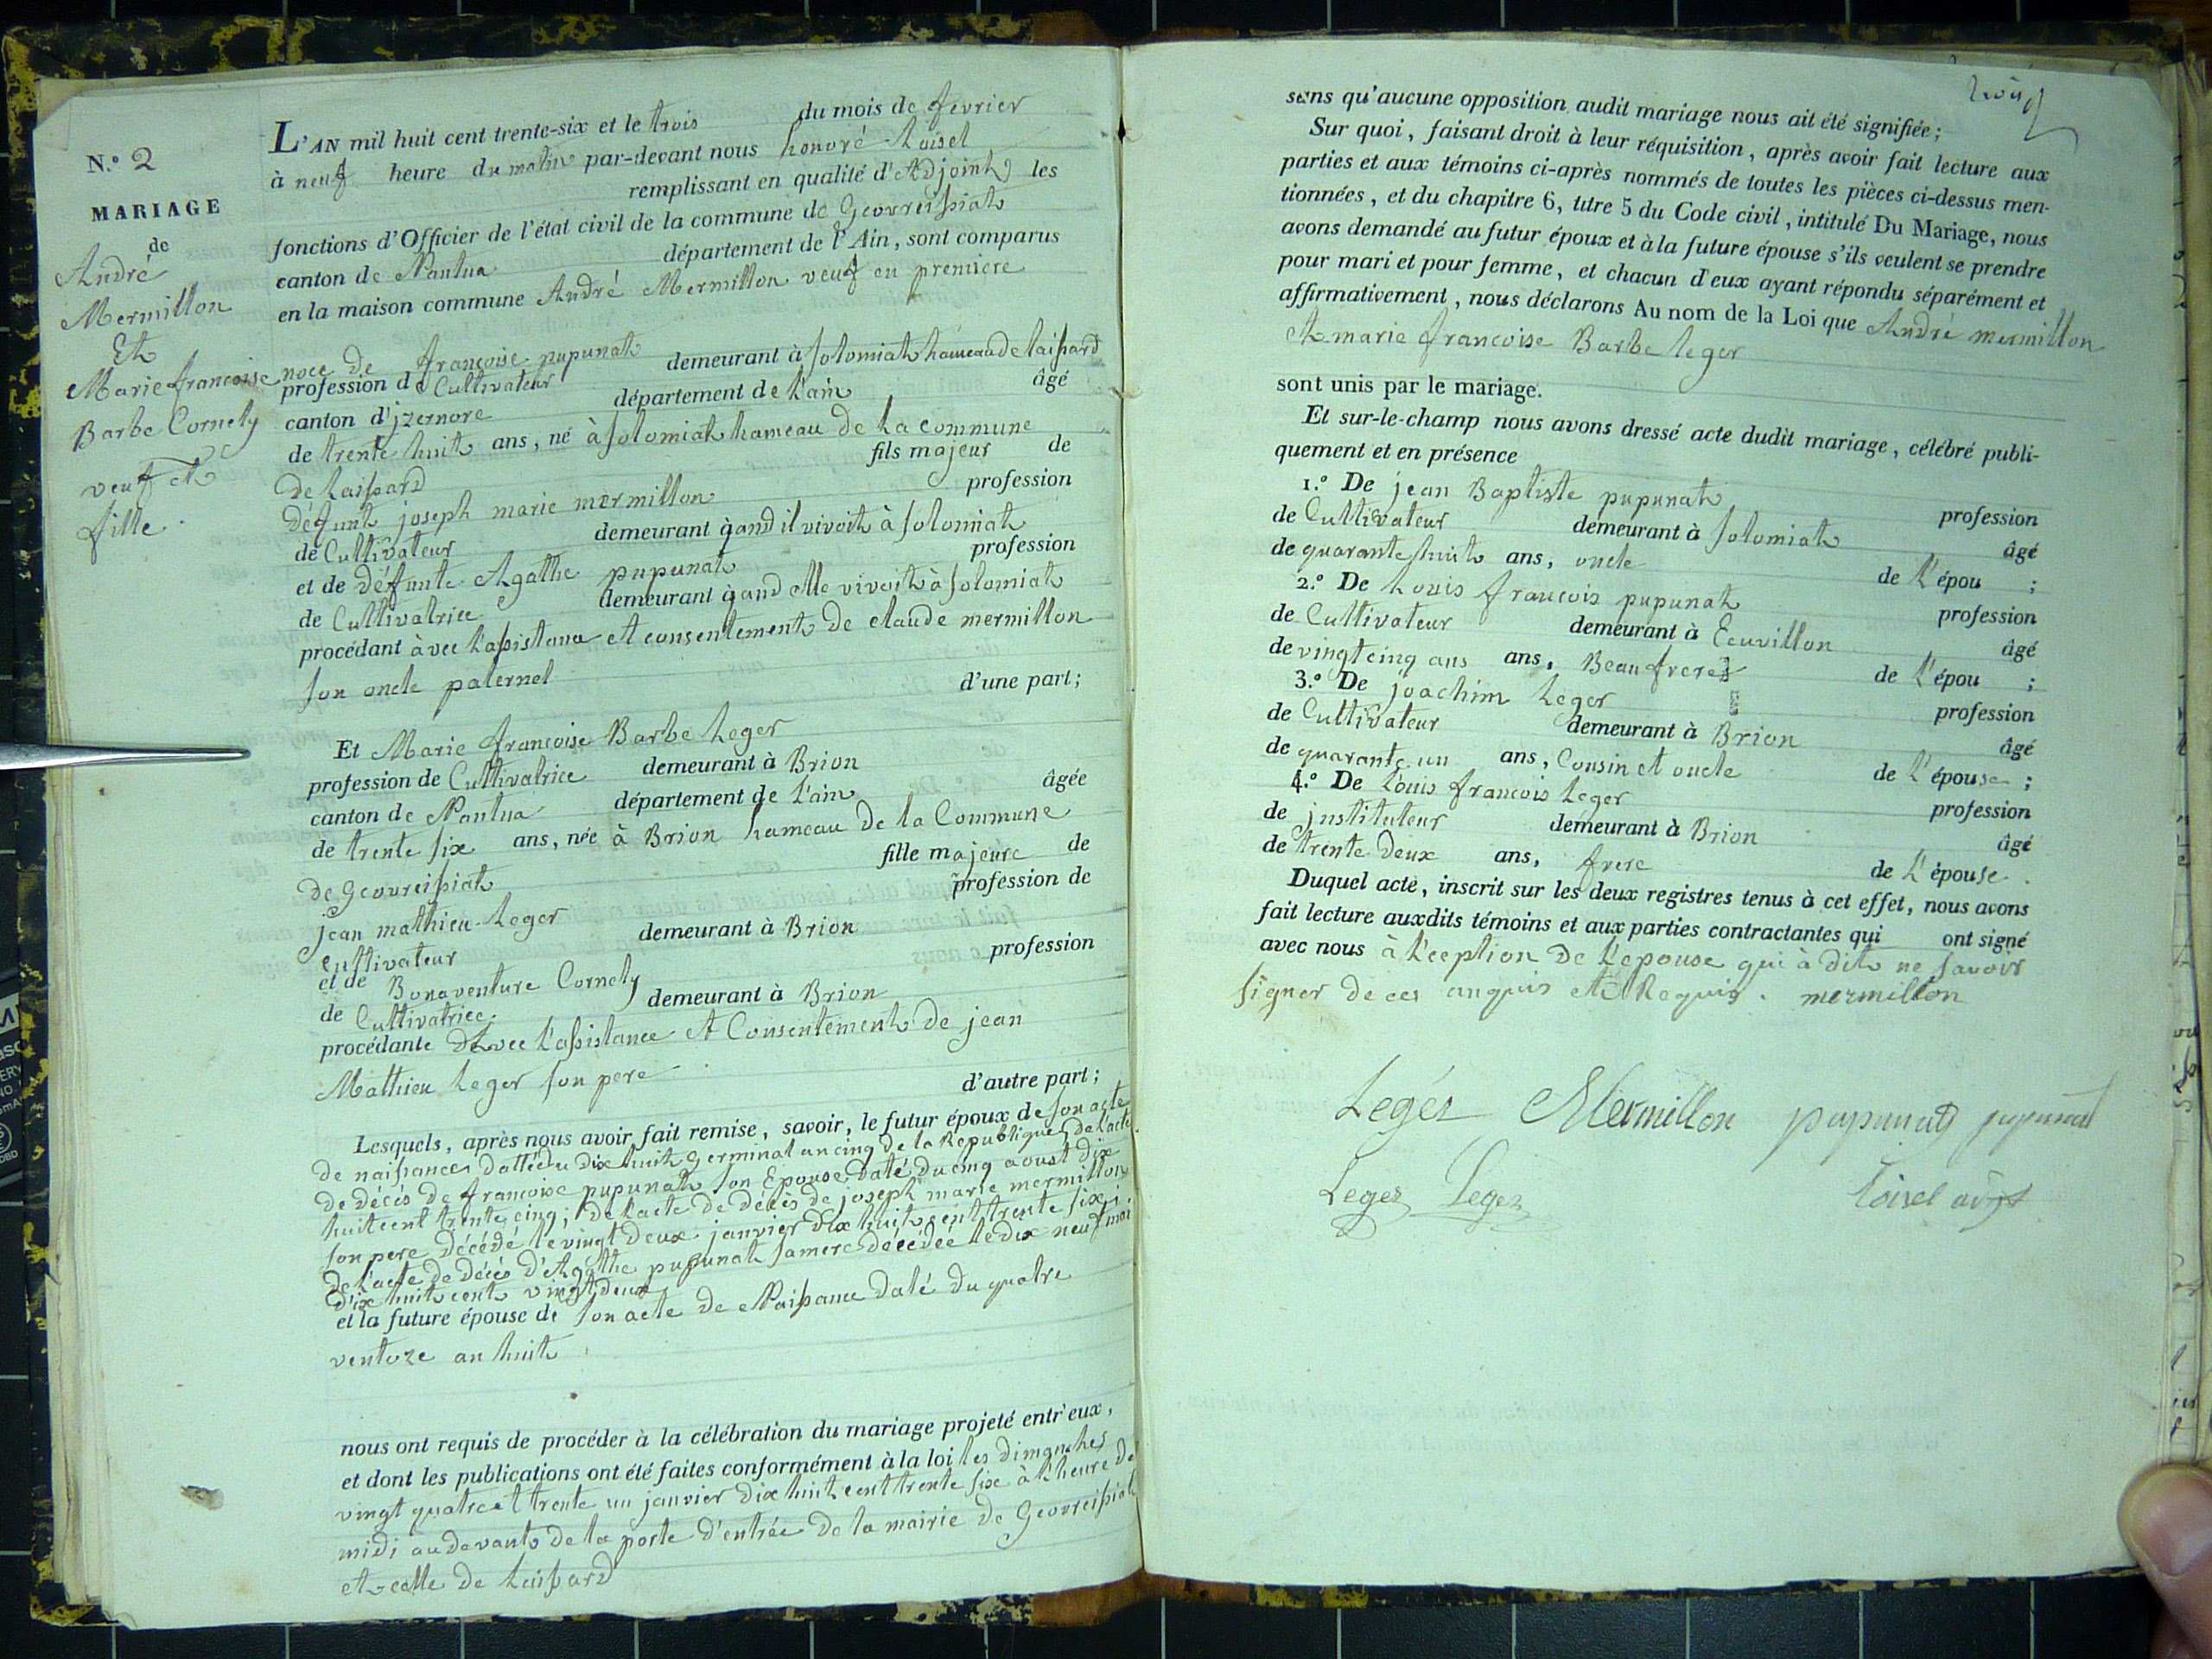 N.º 2
MARIAGE
de
André
Mermillon
Et
Marie francoise
Barbe Cornely
veuf et
fille.
L'AN mil huit cent trente-six et le trois du mois de fevrier
à neuf heure du matin par-devant nous honoré Loisel
remplissant en qualité d'Adjoint les
fonctions d'Officier de l'état civil de la commune de Geovreissiat
canton de Nantua département de l'Ain, sont comparus
en la maison commune André Mermillon veuf en premiere
noce de françoise pupunat
profession de Cultivateur demeurant à solomiat hameau de laissard
canton d'jzernore département de l'ain âgé
de trente huit ans, né à solomiat hameau de la commune
de Laissard fils majeur de
Défunt joseph marie mermillon profession
de Cultivateur demeurant qand il vivoit à solomiat
et de défunte Agathe pupunat profession
de Cultivatrice demeurant qand elle vivoit à solomiat
procédant àvec l'assistance et consentement de claude mermillon
son oncle paternel d'une part;
Et Marie francoise Barbe Leger
profession de Cultivatrice demeurant à Brion
canton de Nantua département de l'ain âgée
de trente six ans, née à Brion hameau de la Commune
de Geovreissiat fille majeure de
jean mathieu Leger profession de
cultivateur demeurant à Brion
et de Bonaventure Cornely profession
de Cultivatrice demeurant à Brion
procédante Avec l'assistance et Consentement de jean
Mathieu Leger son pere d'autre part;
Lesquels, après nous avoir fait remise, savoir, le futur époux de son acte
de naissance dattée du dix huit germinal an cinq de la Republique, de l'acte
de décès de francoise pupunat son Epouse daté du cinq aoust dix
huit cent trente cinq; de l'acte de décès de joseph marie mermillon
son pere décédé le vingt deux janvier dix huit cent trente six;
de l'acte de décès d'Agathe pupunat sa mere décédée le dix neuf mai
dix huit cent vingt deux
et la future épouse de son acte de Naissance daté du quatre
ventoze an huit
nous ont requis de procéder à la célébration du mariage projeté entr'eux,
et dont les publications ont été faites conformément à la loi les dimanches
vingt quatre et trente un janvier dix huit cent trente six à l'heure de
midi au devant de la porte d'entrée de la mairie de Geovreissiat
et celle de Laissard
sans qu'aucune opposition audit mariage nous ait été signifiée;
Sur quoi, faisant droit à leur réquisition, après avoir fait lecture aux
parties et aux témoins ci-après nommés de toutes les pièces ci-dessus men-
tionnées, et du chapitre 6, titre 5 du Code civil, intitulé Du Mariage, nous
avons demandé au futur époux et à la future épouse s'ils veulent se prendre
pour mari et pour femme, et chacun d'eux ayant répondu séparément et
affirmativement, nous déclarons Au nom de la Loi que André mermillon
et marie francoise Barbe leger
sont unis par le mariage.
Et sur-le-champ nous avons dressé acte dudit mariage, célébré publi-
quement et en présence
1.º De jean Baptiste pupunat profession
de Cultivateur demeurant à solomiat âgé
de quarante huit ans, oncle de l'épou ;
2.º De Louis francois pupunat profession
de Cultivateur demeurant à Ecuvillon âgé
de vingt cinq ans ans, Beaufrere de l'épou ;
3.º De joachim Leger profession
de Cultivateur demeurant à Brion âgé
de quarante un ans, Cousin et oncle de l'épouse ;
4.º De Louis francois Leger profession
de jnstituteur demeurant à Brion âgé
de trente Deux ans, frere de l'épouse .
Duquel acte, inscrit sur les deux registres tenus à cet effet, nous avons
fait lecture auxdits témoins et aux parties contractantes qui ont signé
avec nous à l'eeption de l'epouse qui à dit ne savoir
signer de ces anquis et Requis. mermillon
Leger Mermillon pupunat pupunat
Leger Leger Loisel